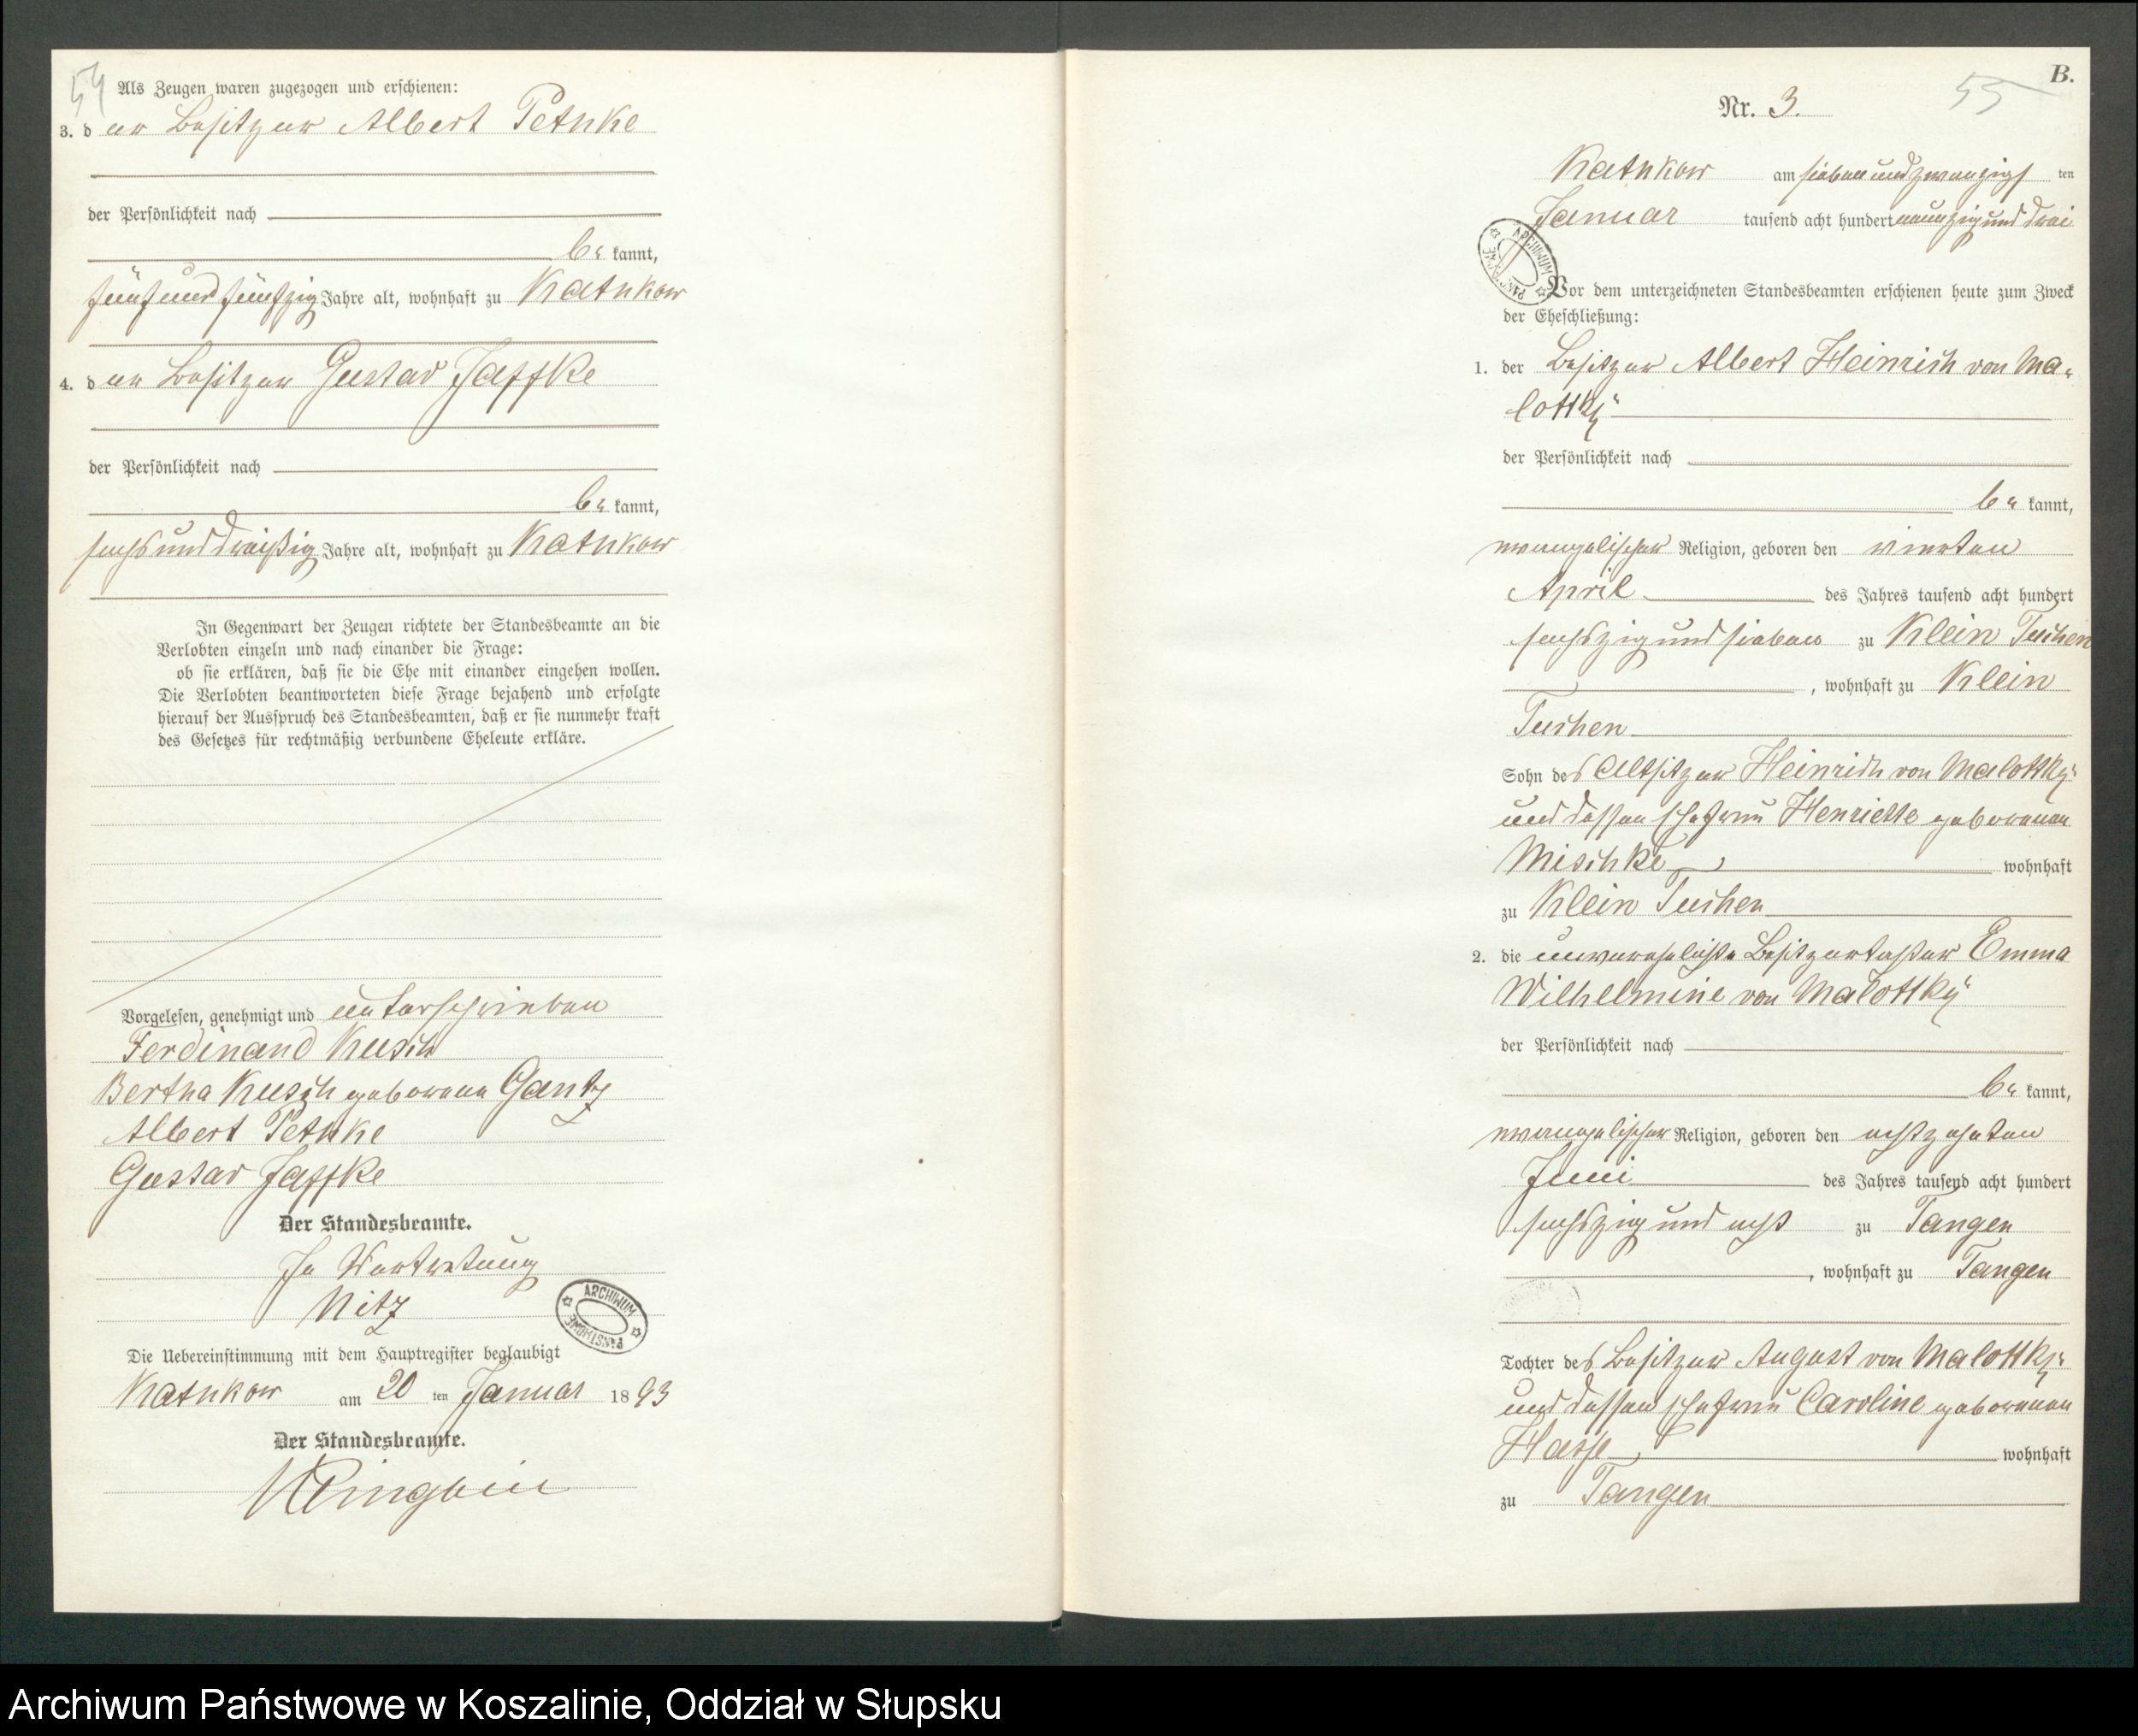 54
Als Zeugen waren zugezogen und erschienen:
3. d er Besitzer Albert Pethke
der Persönlichkeit nach
be kannt,
fünf und fünfzig Jahre alt, wohnhaft zu Kathkow
4. d er Besitzer Gustav Jaffke
der Persönlichkeit nach
be kannt,
sechsunddreißig Jahre alt, wohnhaft zu Kathkow
In Gegenwart der Zeugen richtete der Standesbeamte an die
Verlobten einzeln und nach einander die Frage:
ob sie erklären, daß sie die Ehe mit einander eingehen wollen.
Die Verlobten beantworteten diese Frage bejahend und erfolgte
hierauf der Ausspruch des Standesbeamten, daß er sie nunmehr kraft
des Gesetzes für rechtmäßig verbundene Eheleute erkläre.
Vorgelesen, genehmigt und unterschrieben
Ferdinand Kusch
Bertha Kusch geborene Gantz
Albert Pethke
Gustav Jaffke
Der Standesbeamte.
In Vertretung
Nitz
ARCHIWUM PAŃSTWOWE
Die Uebereinstimmung mit dem Hauptregister beglaubigt
Kathkow am 20 ten Januar 18 93
Der Standesbeamte.
B.
55
Nr. 3.
Kathkow am siebenundzwanzigs ten
Januar tausend acht hundert neunzig und drei
ARCHIWUM PAŃSTWOWE
Vor dem unterzeichneten Standesbeamten erschienen heute zum Zweck
der Eheschließung:
1. der Besitzer Albert Heinrich von Ma-
lottky
der Persönlichkeit nach
be kannt,
evangelischer Religion, geboren den vierten
April des Jahres tausend acht hundert
sechszig und sieben zu Klein Tuchen
, wohnhaft zu Klein
Tuchen
Sohn des Altsitzer Heinrich von Malottky
und dessen Ehefrau Henriette geborenen
Mischke wohnhaft
zu Klein Tuchen
2. die unverehelichte Besitzertochter Emma
Wilhelmine von Malottky
der Persönlichkeit nach
be kannt,
evangelischer Religion, geboren den achtzehnten
Juni des Jahres tausend acht hundert
sechszig und acht zu Tangen
, wohnhaft zu Tangen
Tochter des Besitzer August von Malottky
und dessen Ehefrau Caroline geborenen
Hasse wohnhaft
zu Tangen
Archiwum Państwowe w Koszalinie, Oddział w Słupsku